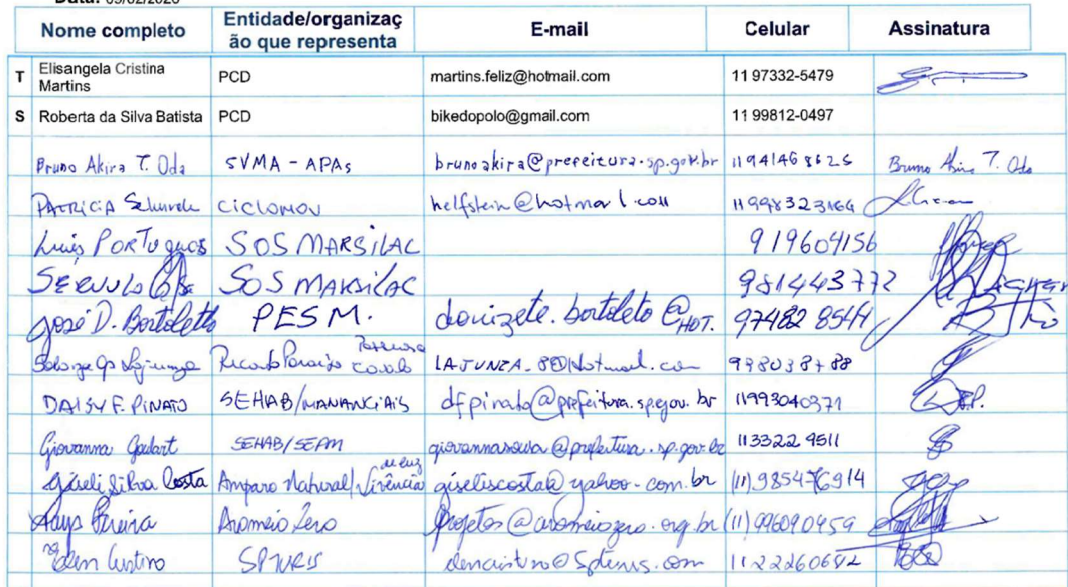 Data: 05/02/2020
Nome completo Entidade/organizaç ão que representa E-mail Celular Assinatura
T Elisangela Cristina Martins PCD martins.feliz@hotmail.com 11 97332-5479
S Roberta da Silva Batista PCD bikedopolo@gmail.com 11 99812-0497
Bruno Akira T. Oda SVMA - APAs brunoakira@prefeitura.sp.gov.br 11 94146 8625 Bruno Akira T. Oda
PATRICIA CICLOMOV helfstein@hotmail.com 11998323164
Luis PORTUGUOS SOS MARSILAC 919604156
SERVULO SOS MARSILAC 981443772
José D. Bortoletto PESM. donizete.bortoleto@HOT. 97482 8544
Ricardo 998038788
DAISY F. PINATO SEHAB/MANANCIAIS dfpinato@prefeitura.sp.gov.br 11993040371
Giovanna Goulart SEHAB/SEPM @prefeitura.sp.gov.br 113322 9511
Giseli Silva Costa Amparo Natural/Vivência giseliscosta@yahoo.com.br (11) 985476914
Pereira Aromeio Zero projetos@aromeiozero.org.br (11) 996090459
SPTURIS